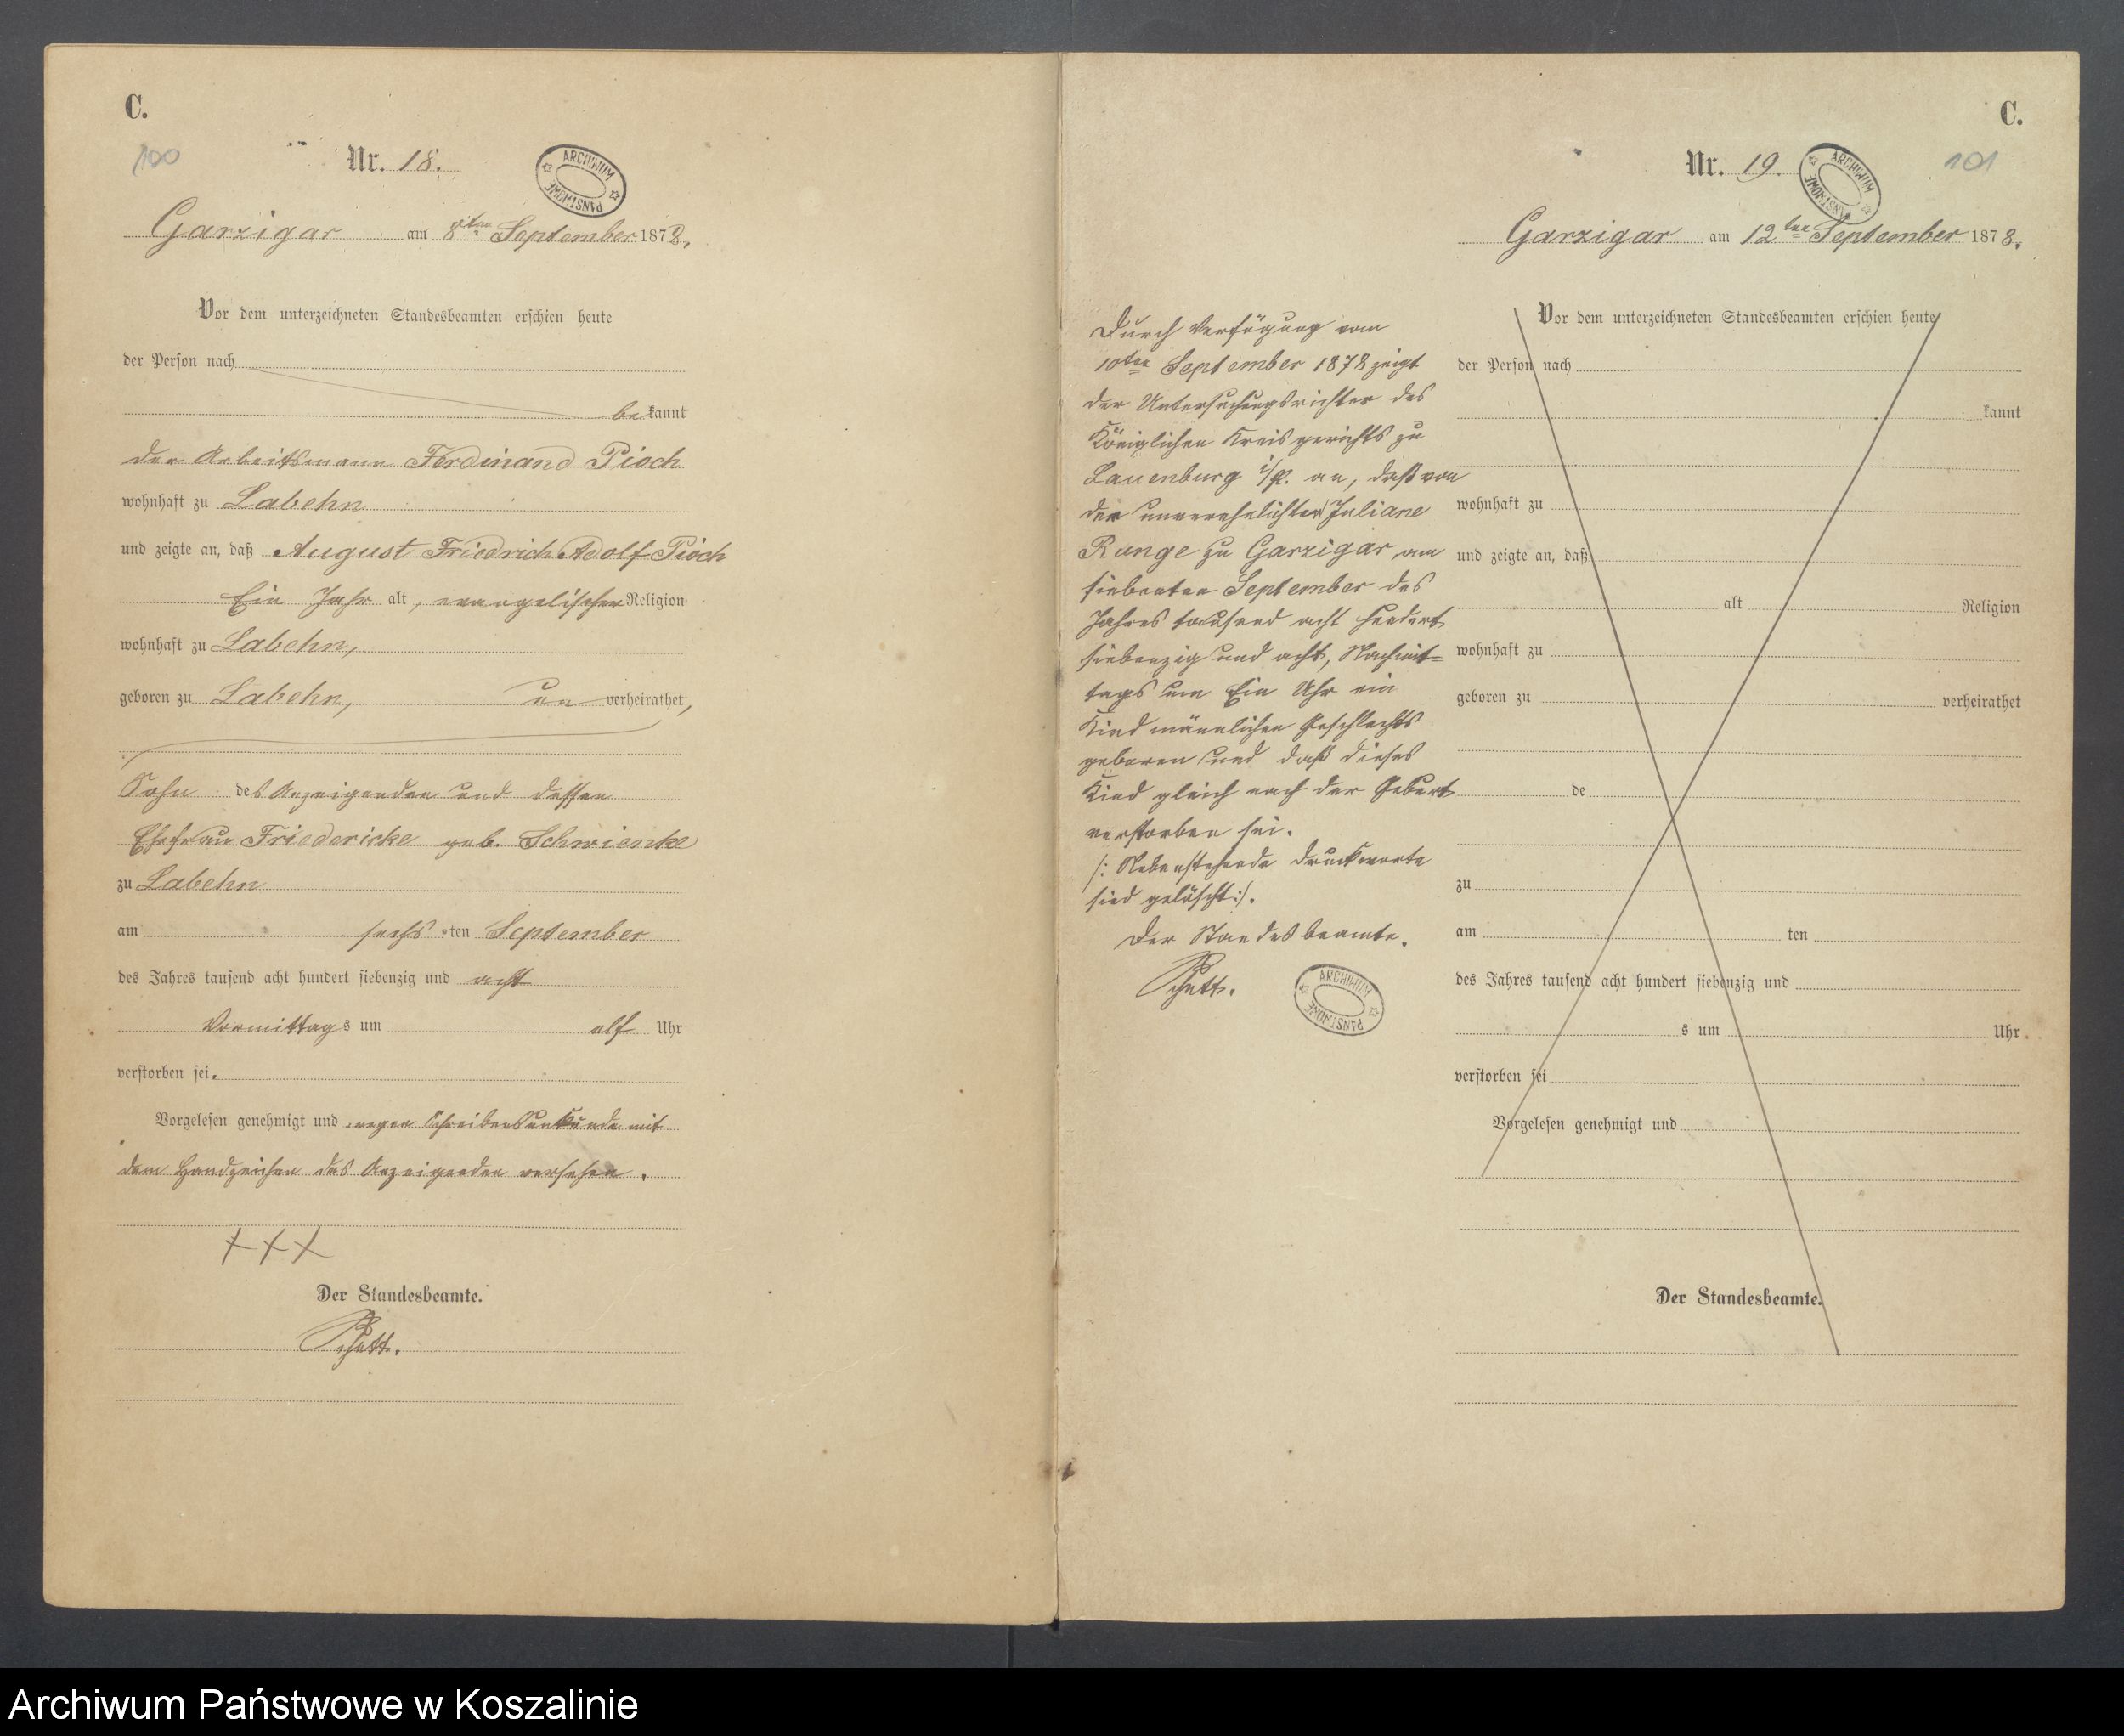 C.
100
Nr. 18.
ARCHIWUM PAŃSTWOWE
Garzigar am 8ten September 1878.
Vor dem unterzeichneten Standesbeamten erschien heute
der Person nach
bekannt
der Arbeitsmann Ferdinand Pioch
wohnhaft zu Labehn
und zeigte an, daß August Friedrich Adolf Pioch
Ein Jahr alt, evangelischer Religion
wohnhaft zu Labehn,
geboren zu Labehn, un verheirathet,
Sohn des Anzeigenden und dessen
Ehefrau Friedericke geb. Schwienke
zu Labehn
am sechs ten September
des Jahres tausend acht hundert siebenzig und acht
Vormittags um elf Uhr
verstorben sei.
Vorgelesen genehmigt und wegen Schreibensunkunde mit
dem Handzeichen des Anzeigenden versehen.
+++
Der Standesbeamte.
C.
Nr. 19.
101
ARCHIWUM PAŃSTWOWE
Garzigar am 12ten September 1878.
Durch Verfügung vom
10ten September 1878 zeigt
der Untersuchungsrichter des
Königlichen Kreisgerichts zu
Lauenburg i/P. an, daß von
der unverehelichten Juliane
Runge zu Garzigar, am
siebenten September des
Jahres tausend acht hundert
siebenzig und acht, Nachmit-
tags um Ein Uhr ein
Kind männlichen Geschlechts
geboren und daß dieses
Kind gleich nach der Geburt
verstorben sei.
/: Nebenstehende Druckworte
sind gelöscht :/.
Der Standesbeamte.
ARCHIWUM PAŃSTWOWE
Vor dem unterzeichneten Standesbeamten erschien heute
der Person nach
kannt
wohnhaft zu
und zeigte an, daß
alt Religion
wohnhaft zu
geboren zu verheirathet
de
zu
am ten
des Jahres tausend acht hundert siebenzig und
s um Uhr
verstorben sei
Vorgelesen genehmigt und
Der Standesbeamte.
Archiwum Państwowe w Koszalinie